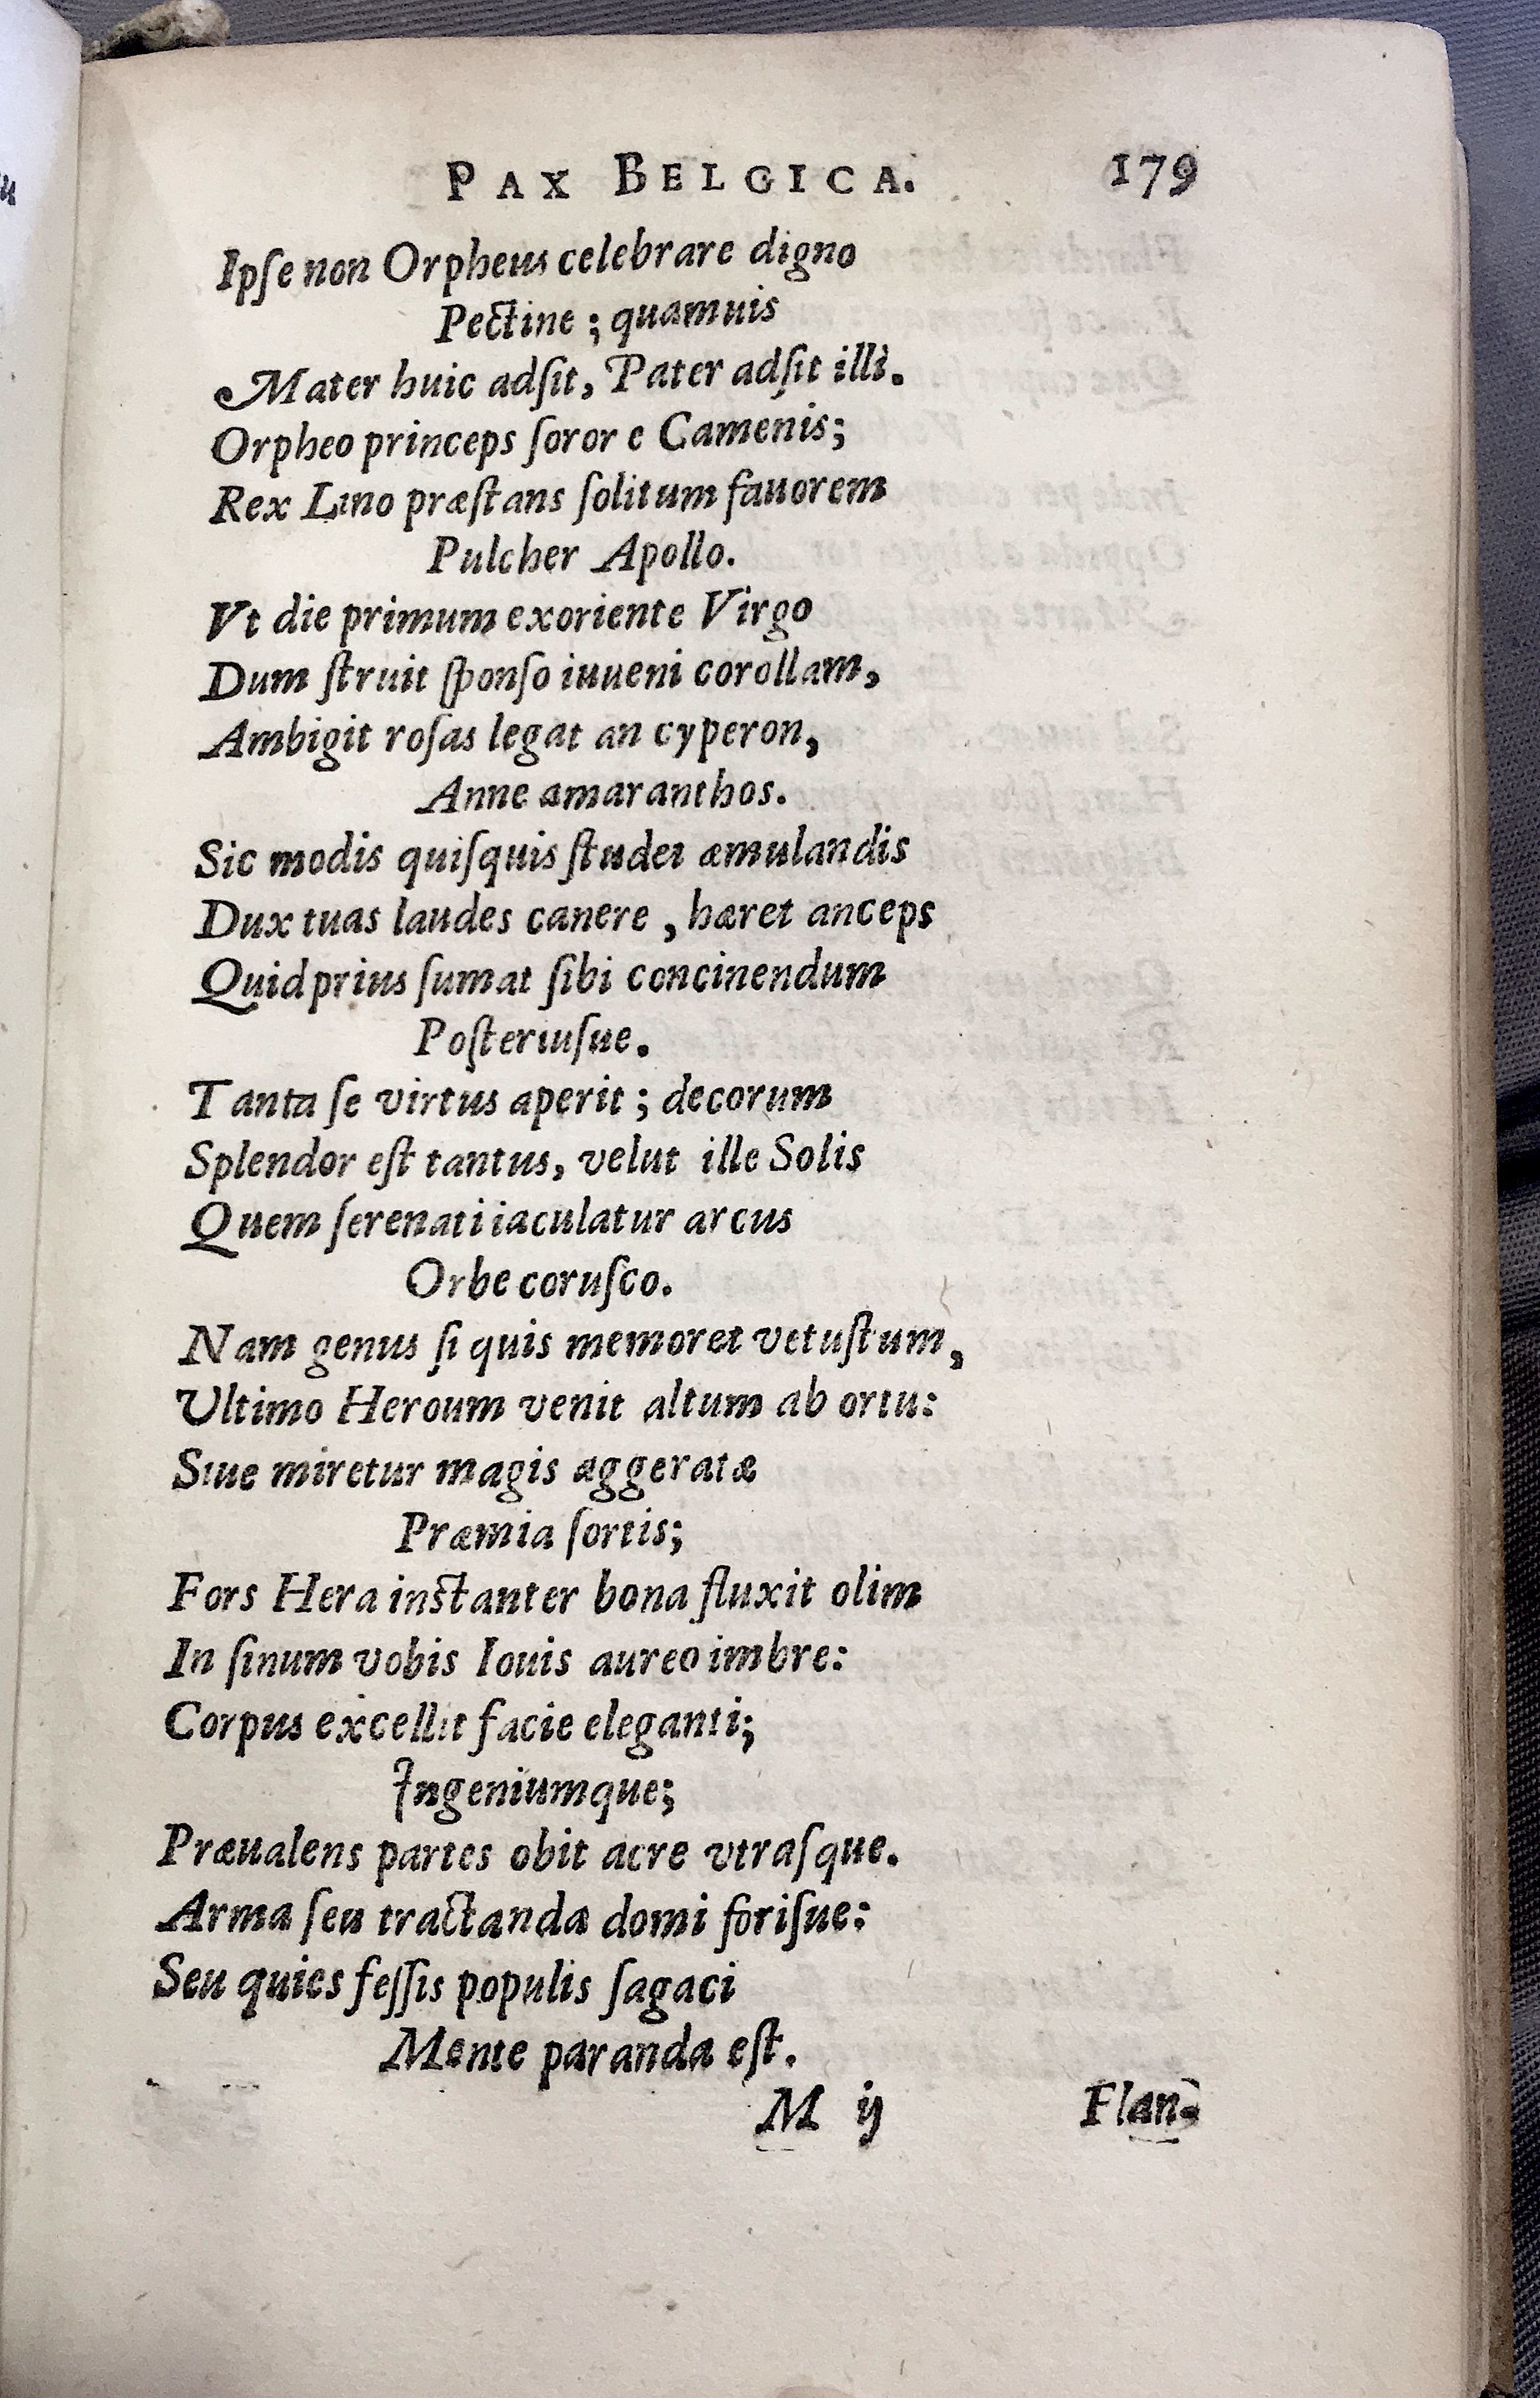 PAX BELGICA. 179
Ipſe non Orpheus celebrare digno
Pectine ; quamuis
Mater huic adſit, Pater adſit illi.
Orpheo princeps ſoror e Camenis;
Rex Lino præſtans ſolitum fauorem
Pulcher Apollo.
Vt die primum exoriente Virgo
Dum ſtruit ſponſo iuueni corollam,
Ambigit roſas legat an cyperon,
Anne amaranthos.
Sic modis quiſquis ſtudet æmulandis
Dux tuas laudes canere , hæret anceps
Quid prius ſumat ſibi concinendum
Poſteriuſue.
Tanta ſe virtus aperit ; decorum
Splendor eſt tantus, velut ille Solis
Quem ſerenati iaculatur arcus
Orbe coruſco.
Nam genus ſi quis memoret vetuſtum,
Ultimo Heroum venit altum ab ortu:
Siue miretur magis aggeratæ
Præmia ſortis;
Fors Hera instanter bona fluxit olim
In ſinum vobis Iouis aureo imbre:
Corpus excellit facie eleganti;
Ingeniumque;
Præualens partes obit acre vtraſque.
Arma ſeu tractanda domi foriſue:
Seu quies feſſis populis ſagaci
Mente paranda eſt.
M ij Flan-